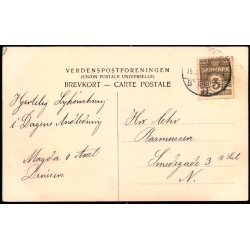 VERDENSPOSTFORENINGEN
(UNION POSTALE UNIVERSELLE)
BREVKORT – CARTE POSTALE
DANMARK
3
Hjertelig Lykønskning
i Dagens Anledning
Magda & Axel
Hr Chr
Rasmussen
Smedegade 3
N.